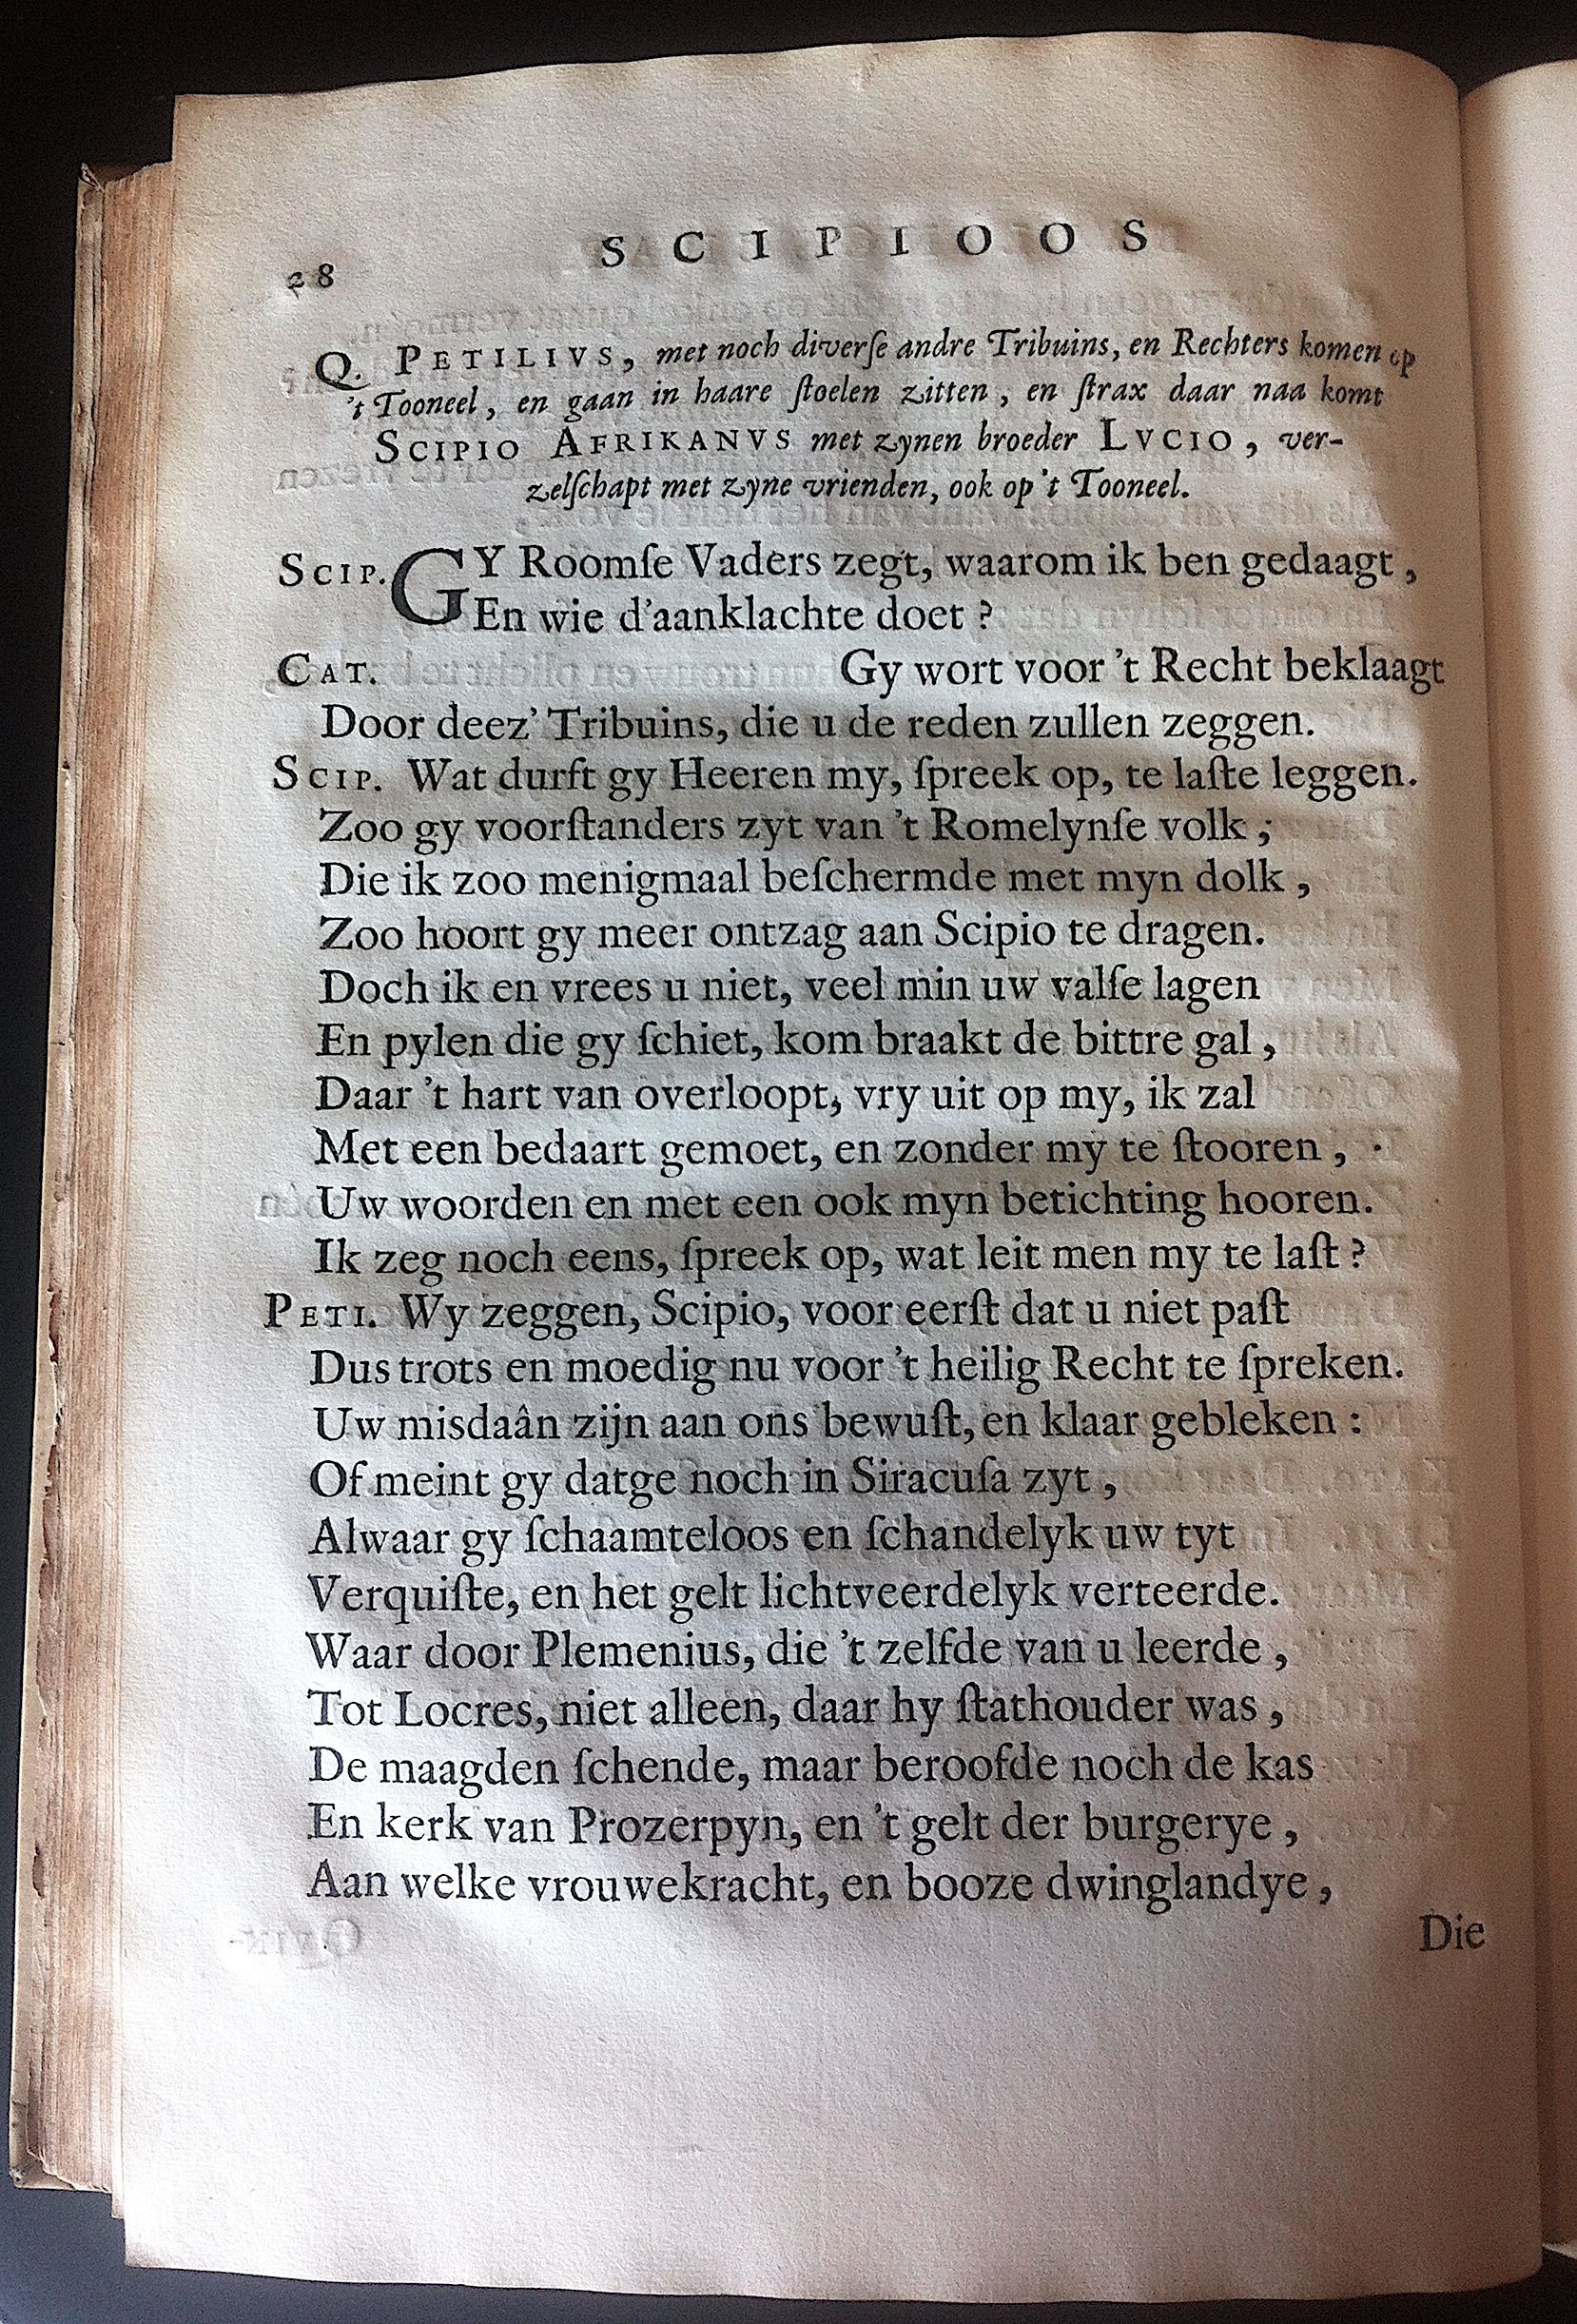 28 SCIPIOOS
Q. PETILIVS, met noch diverſe andre Tribuins, en Rechters komen op
't Tooneel, en gaan in haare ſtoelen zitten, en ſtrax daar naa komt
SCIPIO AFRIKANVS met zynen broeder LVCIO, ver-
zelſchapt met zyne vrienden, ook op 't Tooneel.
SCIP. GY Roomſe Vaders zegt, waarom ik ben gedaagt,
En wie d'aanklachte doet?
CAT. Gy wort voor 't Recht beklaagt
Door deez' Tribuins, die u de reden zullen zeggen.
SCIP. Wat durft gy Heeren my, ſpreek op, te laſte leggen.
Zoo gy voorſtanders zyt van 't Romelynſe volk;
Die ik zoo menigmaal beſchermde met myn dolk,
Zoo hoort gy meer ontzag aan Scipio te dragen.
Doch ik en vrees u niet, veel min uw valſe lagen
En pylen die gy ſchiet, kom braakt de bittre gal,
Daar 't hart van overloopt, vry uit op my, ik zal
Met een bedaart gemoet, en zonder my te ſtooren,
Uw woorden en met een ook myn betichting hooren.
Ik zeg noch eens, ſpreek op, wat leit men my te laſt?
PETI. Wy zeggen, Scipio, voor eerſt dat u niet paſt
Dus trots en moedig nu voor 't heilig Recht te ſpreken.
Uw misdaân zijn aan ons bewuſt, en klaar gebleken:
Of meint gy datge noch in Siracuſa zyt,
Alwaar gy ſchaamteloos en ſchandelyk uw tyt
Verquiſte, en het gelt lichtveerdelyk verteerde.
Waar door Plemenius, die 't zelfde van u leerde,
Tot Locres, niet alleen, daar hy ſtathouder was,
De maagden ſchende, maar beroofde noch de kas
En kerk van Prozerpyn, en 't gelt der burgerye,
Aan welke vrouwekracht, en booze dwinglandye,
Die